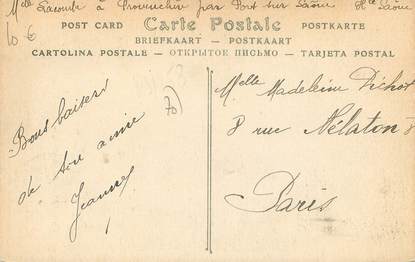 Melle Lacoute à Provenchère par Port sur Saône Hte Saône
10 €
POST CARD Carte Postale POSTKARTE
BRIEFKAART - POSTKAART
CARTOLINA POSTALE - ОТКРЫТОЕ ПИСЬМО - TARJETA POSTAL
Bons baisers
de ton amie
Jeanne
70
Melle Madeleine Pichot
8 rue Nélaton 8
Paris